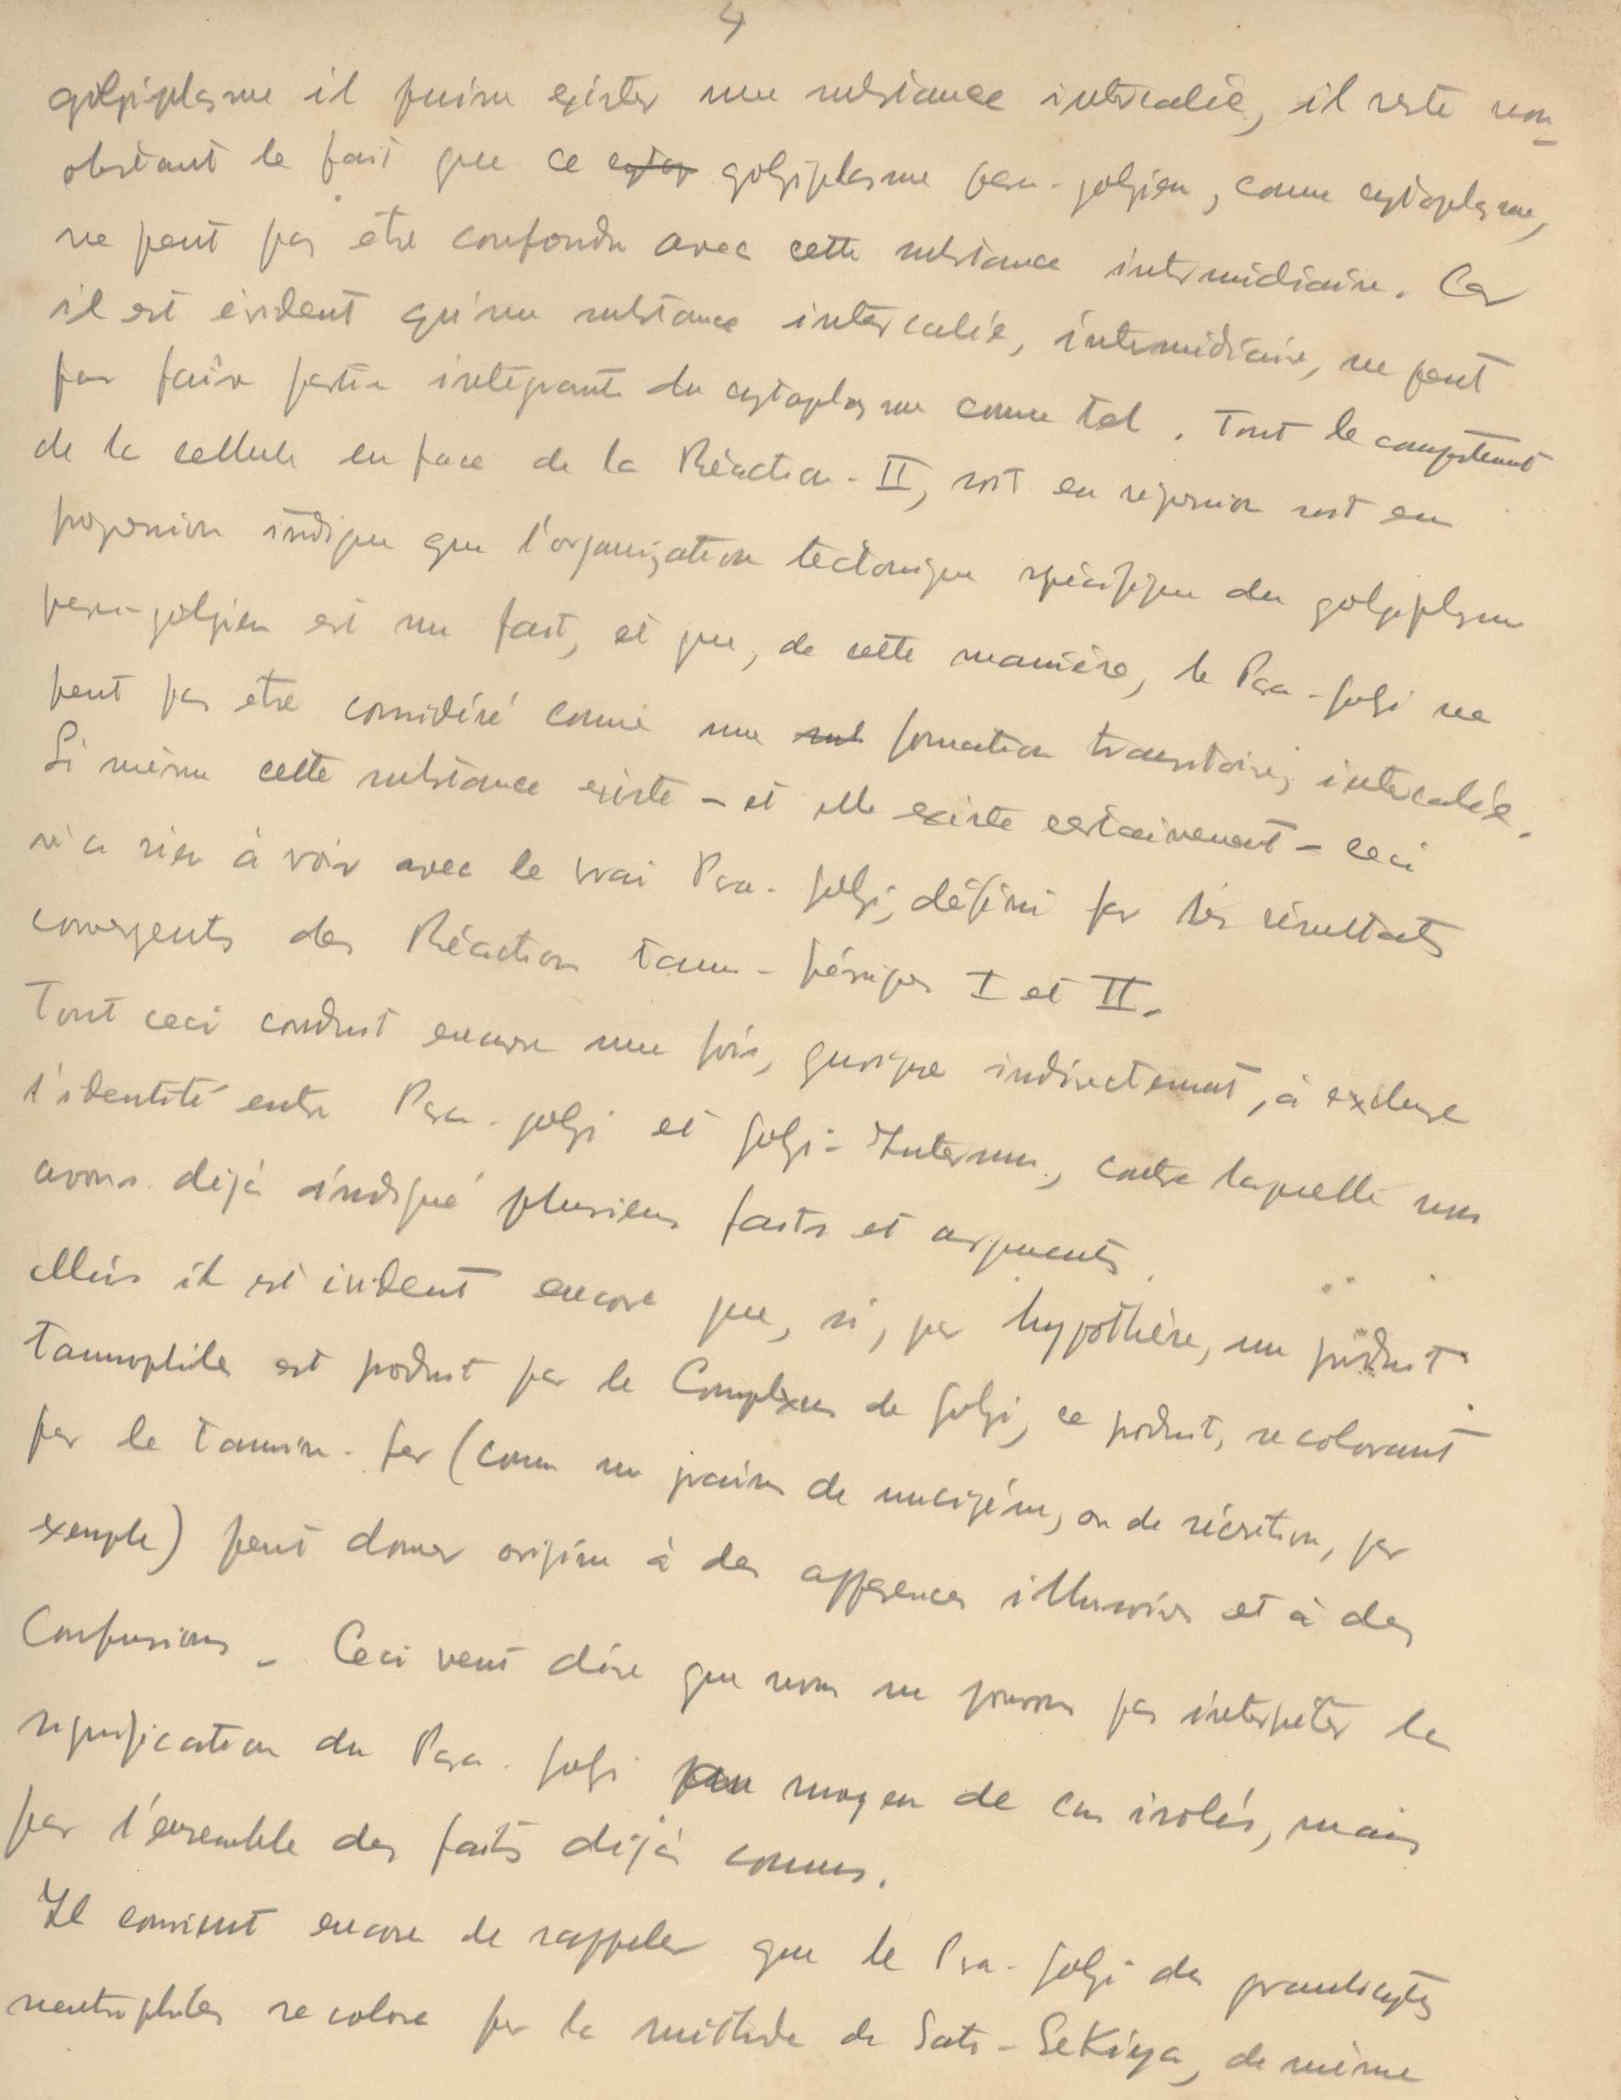 4
golgiplasme il puisse exister une substance intercalée, il reste non
obstant le fait que ce golgiplasme para-golgien, comme cytoplasme,
ne peut pas être confondu avec cette substance intermédiaire. Car
il est évident qu'une substance intercalée, intermédiaire, ne peut
pas faire partie intégrante du cytoplasme comme tel. Tout le comportement
de la cellule en face de la Réaction-II, soit en régression soit en
progression indique que l'organization tectonique spécifique du golgiplasme
para-golgien est un fait, et que, de cette manière, le Para-golgi ne
peut pas etre considéré comme une formation transitoire, intercalée.
Si même cette substance existe – et elle existe certainement – ceci
n'a rien à voir avec le vrai Para-golgi, défini par les résultats
convergents des Réactions tanno-ferriques I et II.
Tout ceci conduit encore une fois, quoique indirectement, à exclure
l'identité entre Para-golgi et golgi-Internum, contre laquelle nous
avons déjà indiqué plusieurs faits et arguments.
Mais il est évident encore que, si, par hypothèse, un produit
tannophile est produit par le Complexus de Golgi, ce produit, se colorant
par le tannin-fer (comme un grain de mucigène, ou de sécrétion, par
exemple) peut donner origine à des apparences illusoires et à des
Confusions – Ceci veut dire que nous ne pouvons pas interpréter la
signification du Para-golgi au moyen de cas isolés, mais
par l'ensemble des faits déjà connus.
Il convient encore de rappeler que le Para-golgi des granulocytes
neutrophiles se colore par la méthode de Sato-Sekiya, de même